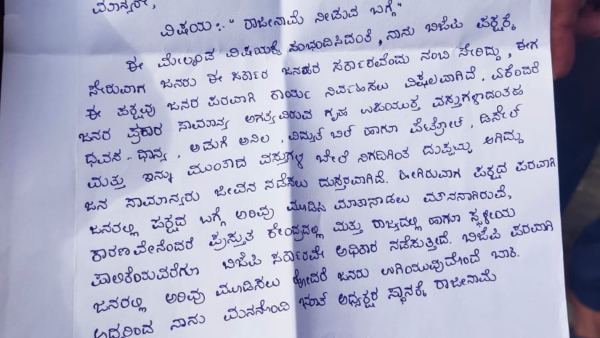 ಮಾನ್ಯರೇ,
ವಿಷಯ:- "ರಾಜೀನಾಮೆ ನೀಡುವ ಬಗ್ಗೆ"
ಈ ಮೇಲ್ಕಂಡ ವಿಷಯಕ್ಕೆ ಸಂಬಂಧಿಸಿದಂತೆ, ನಾನು ಬಿಜೆಪಿ ಪಕ್ಷಕ್ಕೆ
ಸೇರುವಾಗ ಜನರು ಈ ಸರ್ಕಾರ ಜನಪರ ಸರ್ಕಾರವೆಂದು ನಂಬಿ ಸೇರಿದ್ದು, ಈಗ
ಈ ಪಕ್ಷವು ಜನರ ಪರವಾಗಿ ಕಾರ್ಯ ನಿರ್ವಹಿಸಲು ವಿಫಲವಾಗಿದೆ. ಏಕೆಂದರೆ
ಜನರ ಪ್ರಕಾರ ಸಾಮಾನ್ಯ ಅಗತ್ಯವಿರುವ ಗೃಹ ಉಪಯುಕ್ತ ವಸ್ತುಗಳಾದಂತಹ
ಧವಸ-ಧಾನ್ಯ, ಅಡುಗೆ ಅನಿಲ, ವಿದ್ಯುತ್ ಬಿಲ್ ಹಾಗೂ ಪೆಟ್ರೋಲ್, ಡಿಸೇಲ್
ಮತ್ತು ಇನ್ನು ಮುಂತಾದ ವಸ್ತುಗಳ ಬೇಲೆ ನಿಗದಿಗಿಂತ ದುಪ್ಪಟ್ಟು ಆಗಿದ್ದು
ಜನ ಸಾಮಾನ್ಯರು ಜೀವನ ನಡೆಸಲು ದುಸ್ತರವಾಗಿದೆ. ಹೀಗಿರುವಾಗ ಪಕ್ಷದ ಪರವಾಗಿ
ಜನರಲ್ಲಿ ಪಕ್ಷದ ಬಗ್ಗೆ ಅರಿವು ಮೂಡಿಸಿ ಮಾತಾನಾಡಲು ಮೌನನಾಗಿರುವೆ,
ಕಾರಣವೇನೆಂದರೆ ಪ್ರಸ್ತುತ ಕೇಂದ್ರದಲ್ಲಿ ಮತ್ತು ರಾಜ್ಯದಲ್ಲಿ ಹಾಗೂ ಸ್ಥಳೀಯ
ಪಾಲಿಕೆಯವರೆಗೂ ಬಿಜೆಪಿ ಸರ್ಕಾರವೇ ಅಧಿಕಾರ ನಡೆಸುತ್ತಿದೆ. ಬಿಜೆಪಿ ಪರವಾಗಿ
ಜನರಲ್ಲಿ ಅರಿವು ಮೂಡಿಸಲು ಹೋದರೆ ಜನರು ಉಗಿಯುವುದೊಂದೆ ಬಾಕಿ.
ಆದ್ದರಿಂದ ನಾನು ಮನನೊಂದು ಅಧ್ಯಕ್ಷರ ಸ್ಥಾನಕ್ಕೆ ರಾಜೀನಾಮೆ